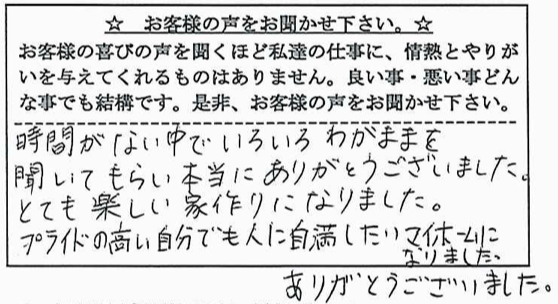 ☆ お客様の声をお聞かせ下さい。☆
お客様の喜びの声を聞くほど私達の仕事に、情熱とやりが
いを与えてくれるものはありません。良い事・悪い事どん
な事でも結構です。是非、お客様の声をお聞かせ下さい。
時間がない中でいろいろわがままを
聞いてもらい本当にありがとうございました。
とても楽しい家作りになりました。
プライドの高い自分でも人に自満したいマイホームに
なりました。
ありがとうございました。